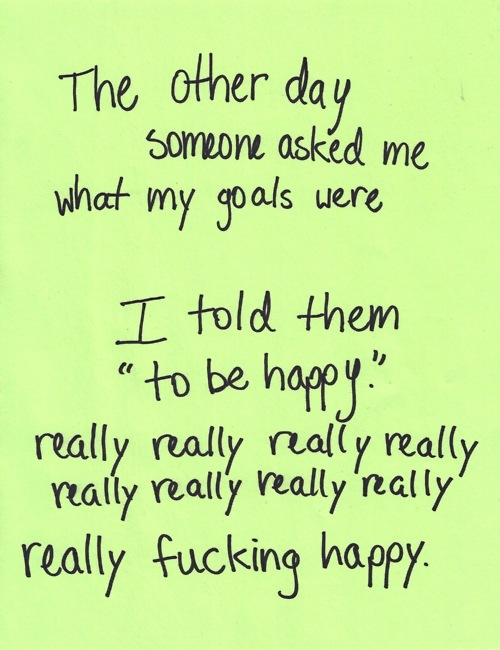 The other day
someone asked me
what my goals were
I told them
"to be happy."
really really really really
really really really really
really fucking happy.